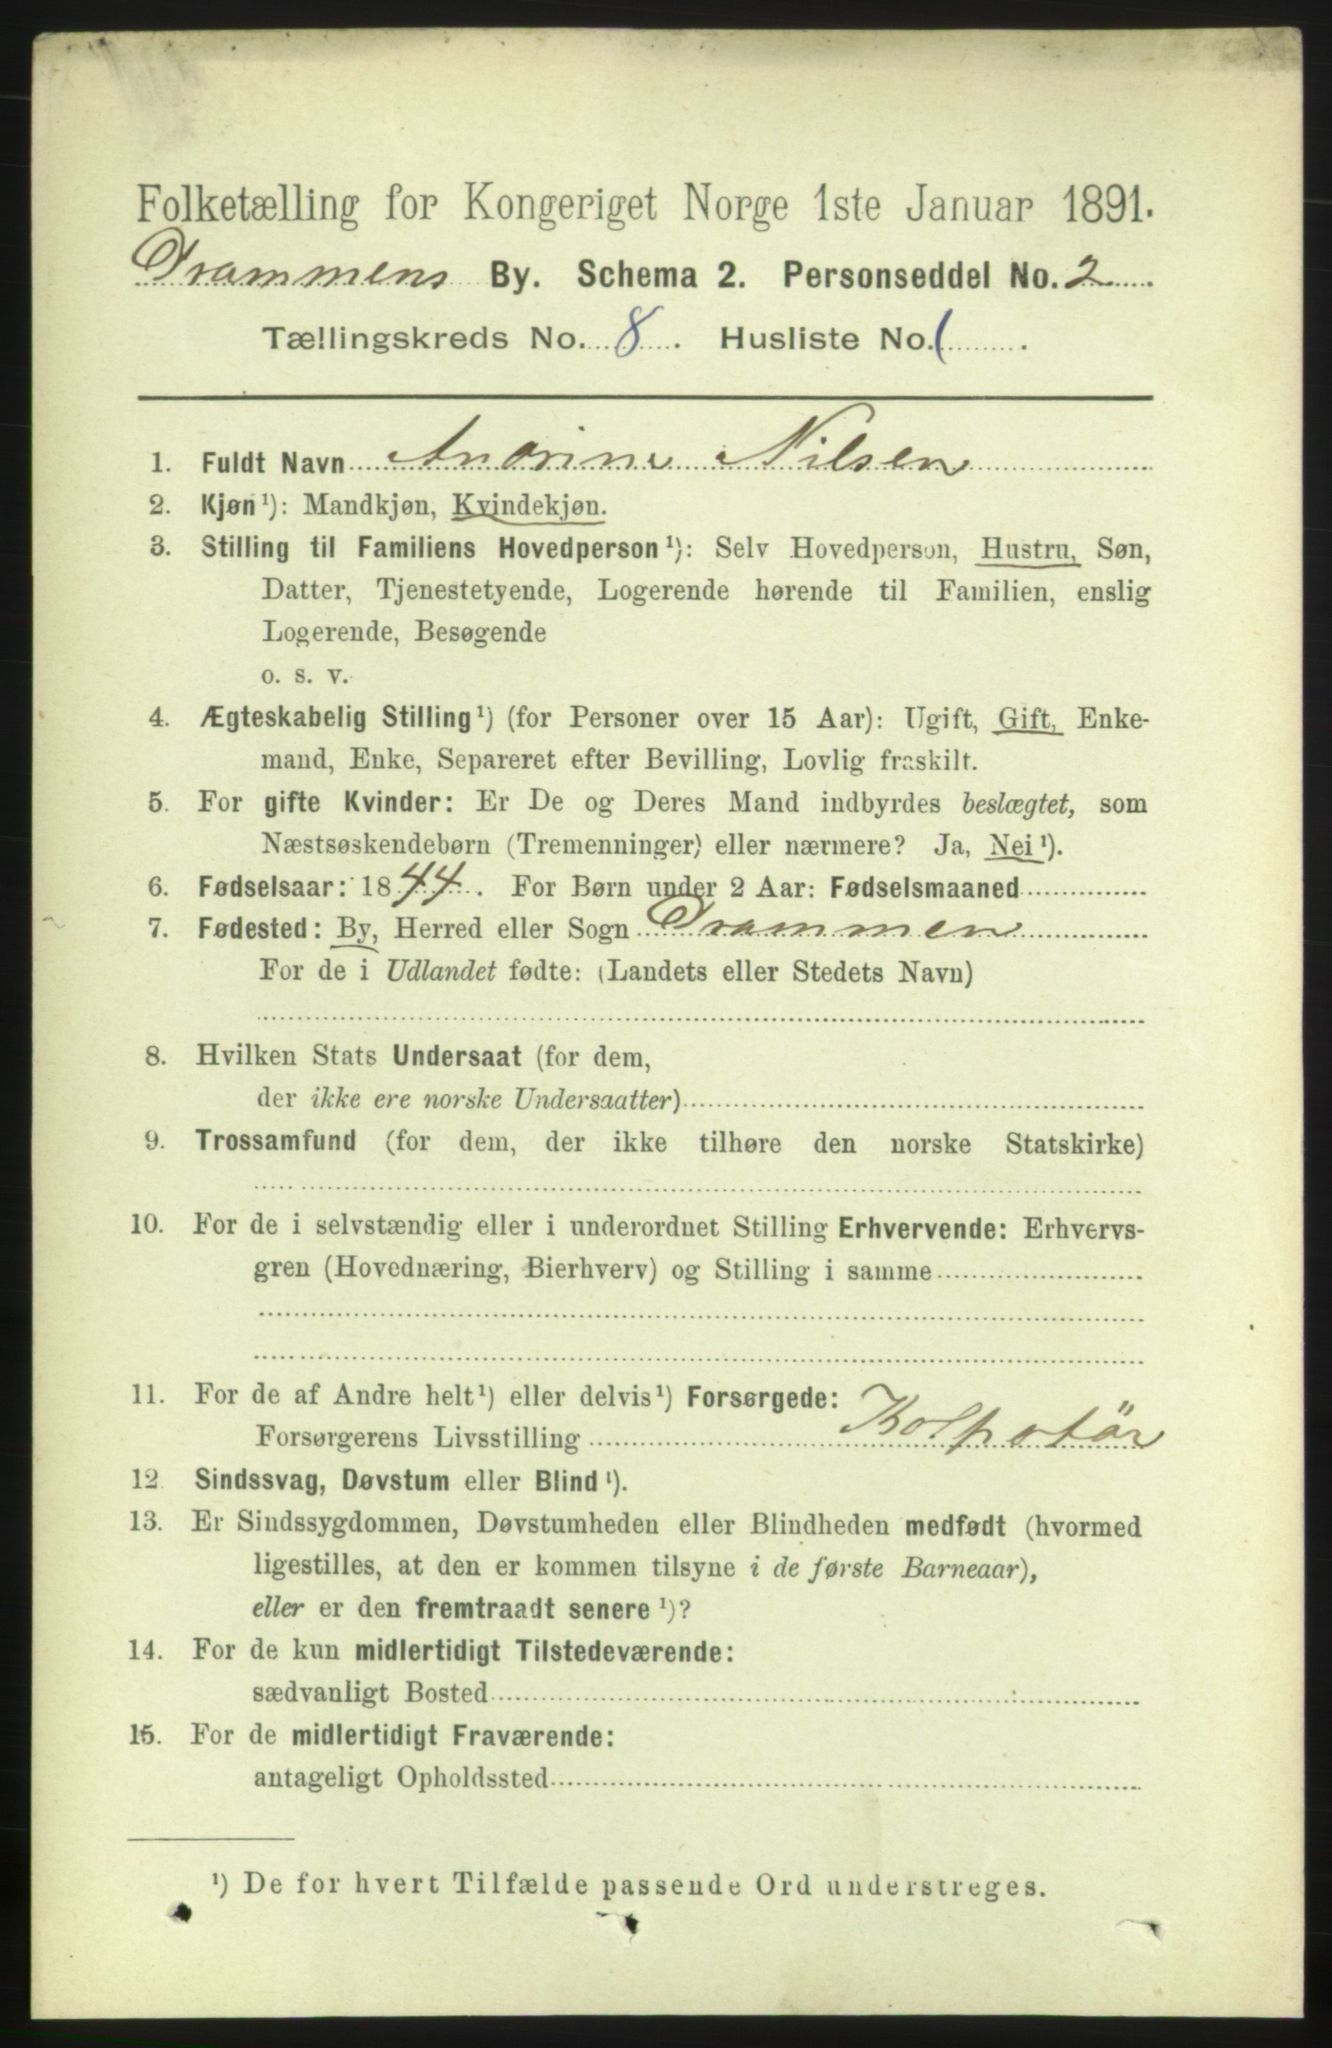 Folketælling for Kongeriget Norge 1ste Januar 1891.
Drammens By. Schema 2. Personseddel No. 2
Tællingskreds No. 8. Husliste No. 1.
1. Fuldt Navn Andrine Nilsen
2. Kjøn ¹): Mandkjøn, Kvindekjøn.
3. Stilling til Familiens Hovedperson ¹): Selv Hovedperson, Hustru, Søn,
Datter, Tjenestetyende, Logerende hørende til Familien, enslig
Logerende, Besøgende
o. s. v.
4. Ægteskabelig Stilling ¹) (for Personer over 15 Aar): Ugift, Gift, Enke-
mand, Enke, Separeret efter Bevilling, Lovlig fraskilt.
5. For gifte Kvinder: Er De og Deres Mand indbyrdes beslægtet, som
Næstsøskendebørn (Tremenninger) eller nærmere? Ja, Nei ¹).
6. Fødselsaar: 1844. For Børn under 2 Aar: Fødselsmaaned
7. Fødested: By, Herred eller Sogn Drammen
For de i Udlandet fødte: (Landets eller Stedets Navn)
8. Hvilken Stats Undersaat (for dem,
der ikke ere norske Undersaatter)
9. Trossamfund (for dem, der ikke tilhøre den norske Statskirke)
10. For de i selvstændig eller i underordnet Stilling Erhvervende: Erhvervs-
gren (Hovednæring, Bierhverv) og Stilling i samme
11. For de af Andre helt ¹) eller delvis ¹) Forsørgede:
Forsørgerens Livsstilling Kolpotör
12. Sindssvag, Døvstum eller Blind ¹).
13. Er Sindssygdommen, Døvstumheden eller Blindheden medfødt (hvormed
ligestilles, at den er kommen tilsyne i de første Barneaar),
eller er den fremtraadt senere ¹)?
14. For de kun midlertidigt Tilstedeværende:
sædvanligt Bosted
15. For de midlertidigt Fraværende:
antageligt Opholdssted
¹) De for hvert Tilfælde passende Ord understreges.